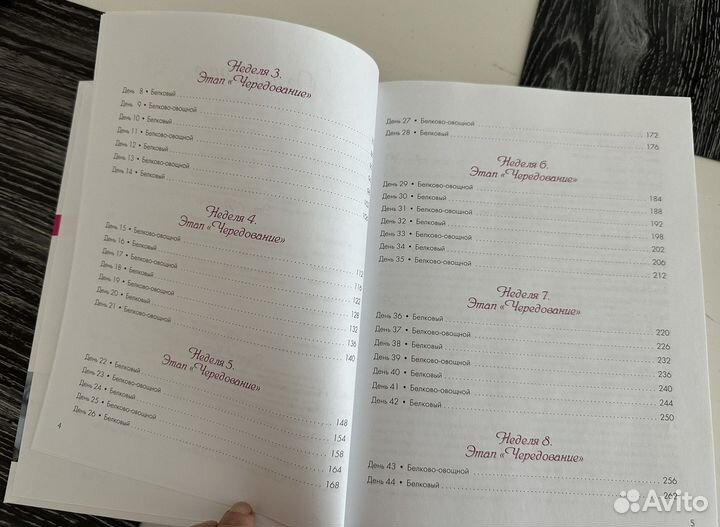 Неделя 3.
Этап «Чередование»
День 8 • Белковый
День 9 • Белково-овощной
День 10 • Белковый
День 11 • Белково-овощной
День 12 • Белковый
День 13 • Белково-овощной
День 14 • Белковый
Неделя 4.
Этап «Чередование»
День 15 • Белково-овощной 112
День 16 • Белковый 116
День 17 • Белково-овощной 122
День 18 • Белковый 128
День 19 • Белково-овощной 132
День 20 • Белковый 136
День 21 • Белково-овощной 140
Неделя 5.
Этап «Чередование»
День 22 • Белковый 148
День 23 • Белково-овощной 154
День 24 • Белковый 158
День 25 • Белково-овощной 164
День 26 • Белковый 168
4
День 27 • Белково-овощной 172
День 28 • Белковый 176
Неделя 6.
Этап «Чередование»
День 29 • Белково-овощной 184
День 30 • Белковый 188
День 31 • Белково-овощной 192
День 32 • Белковый 198
День 33 • Белково-овощной 202
День 34 • Белковый 206
День 35 • Белково-овощной 212
Неделя 7.
Этап «Чередование»
День 36 • Белковый 220
День 37 • Белково-овощной 226
День 38 • Белковый 232
День 39 • Белково-овощной 236
День 40 • Белковый 240
День 41 • Белково-овощной 244
День 42 • Белковый 250
Неделя 8.
Этап «Чередование»
День 43 • Белково-овощной 256
День 44 • Белковый 262
5
Avito